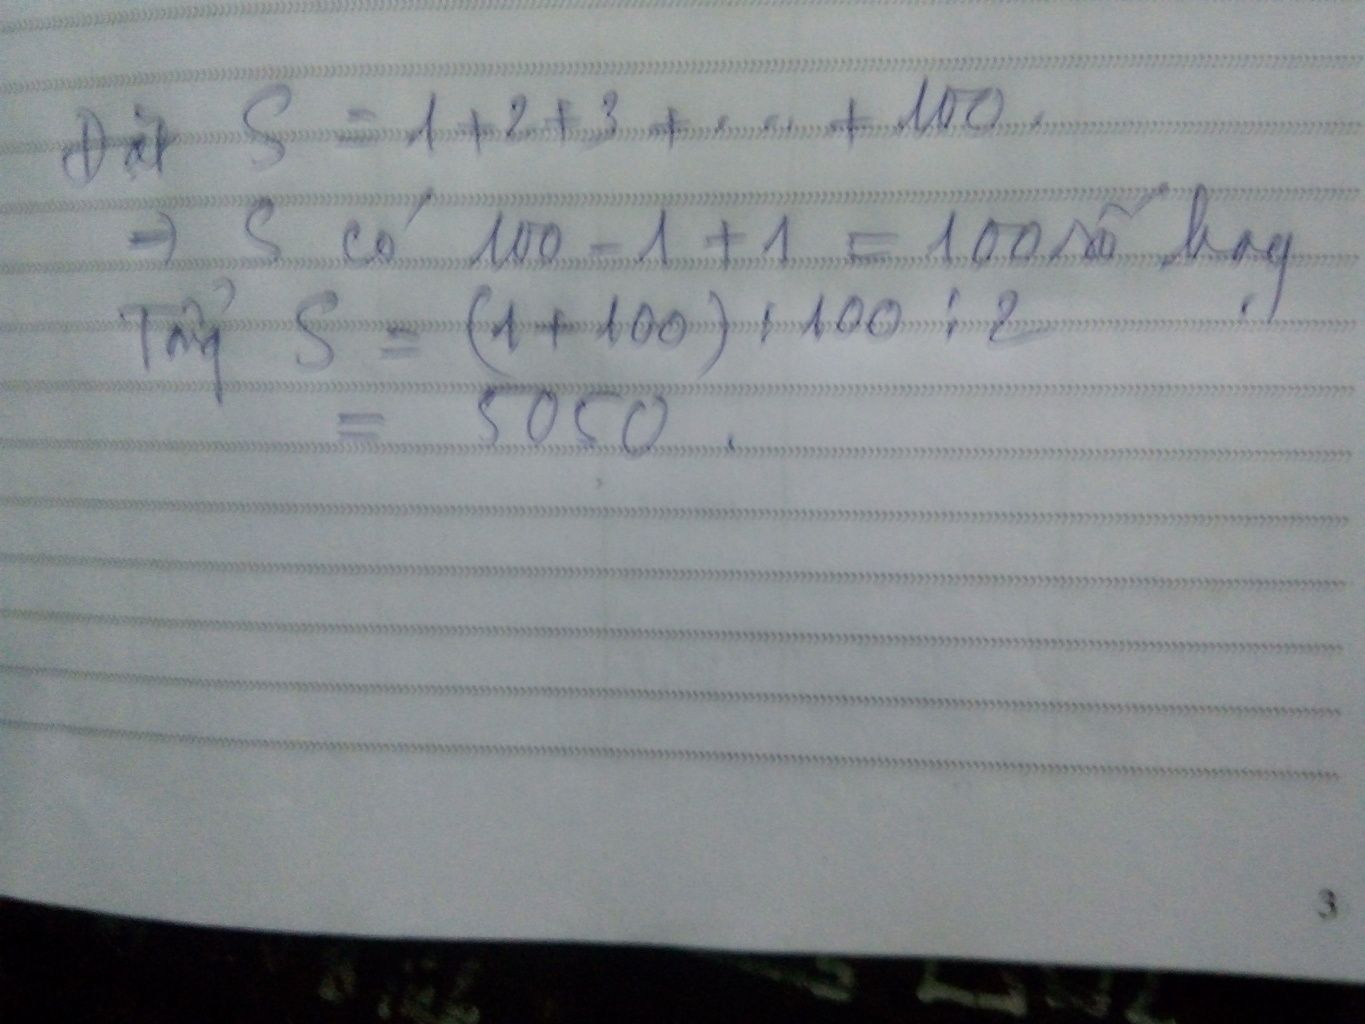 Đặt S = 1+2+3+....+100.
=> S có 100-1+1 = 100 số hạng
Tổng S = (1+100).100:2
= 5050.
3